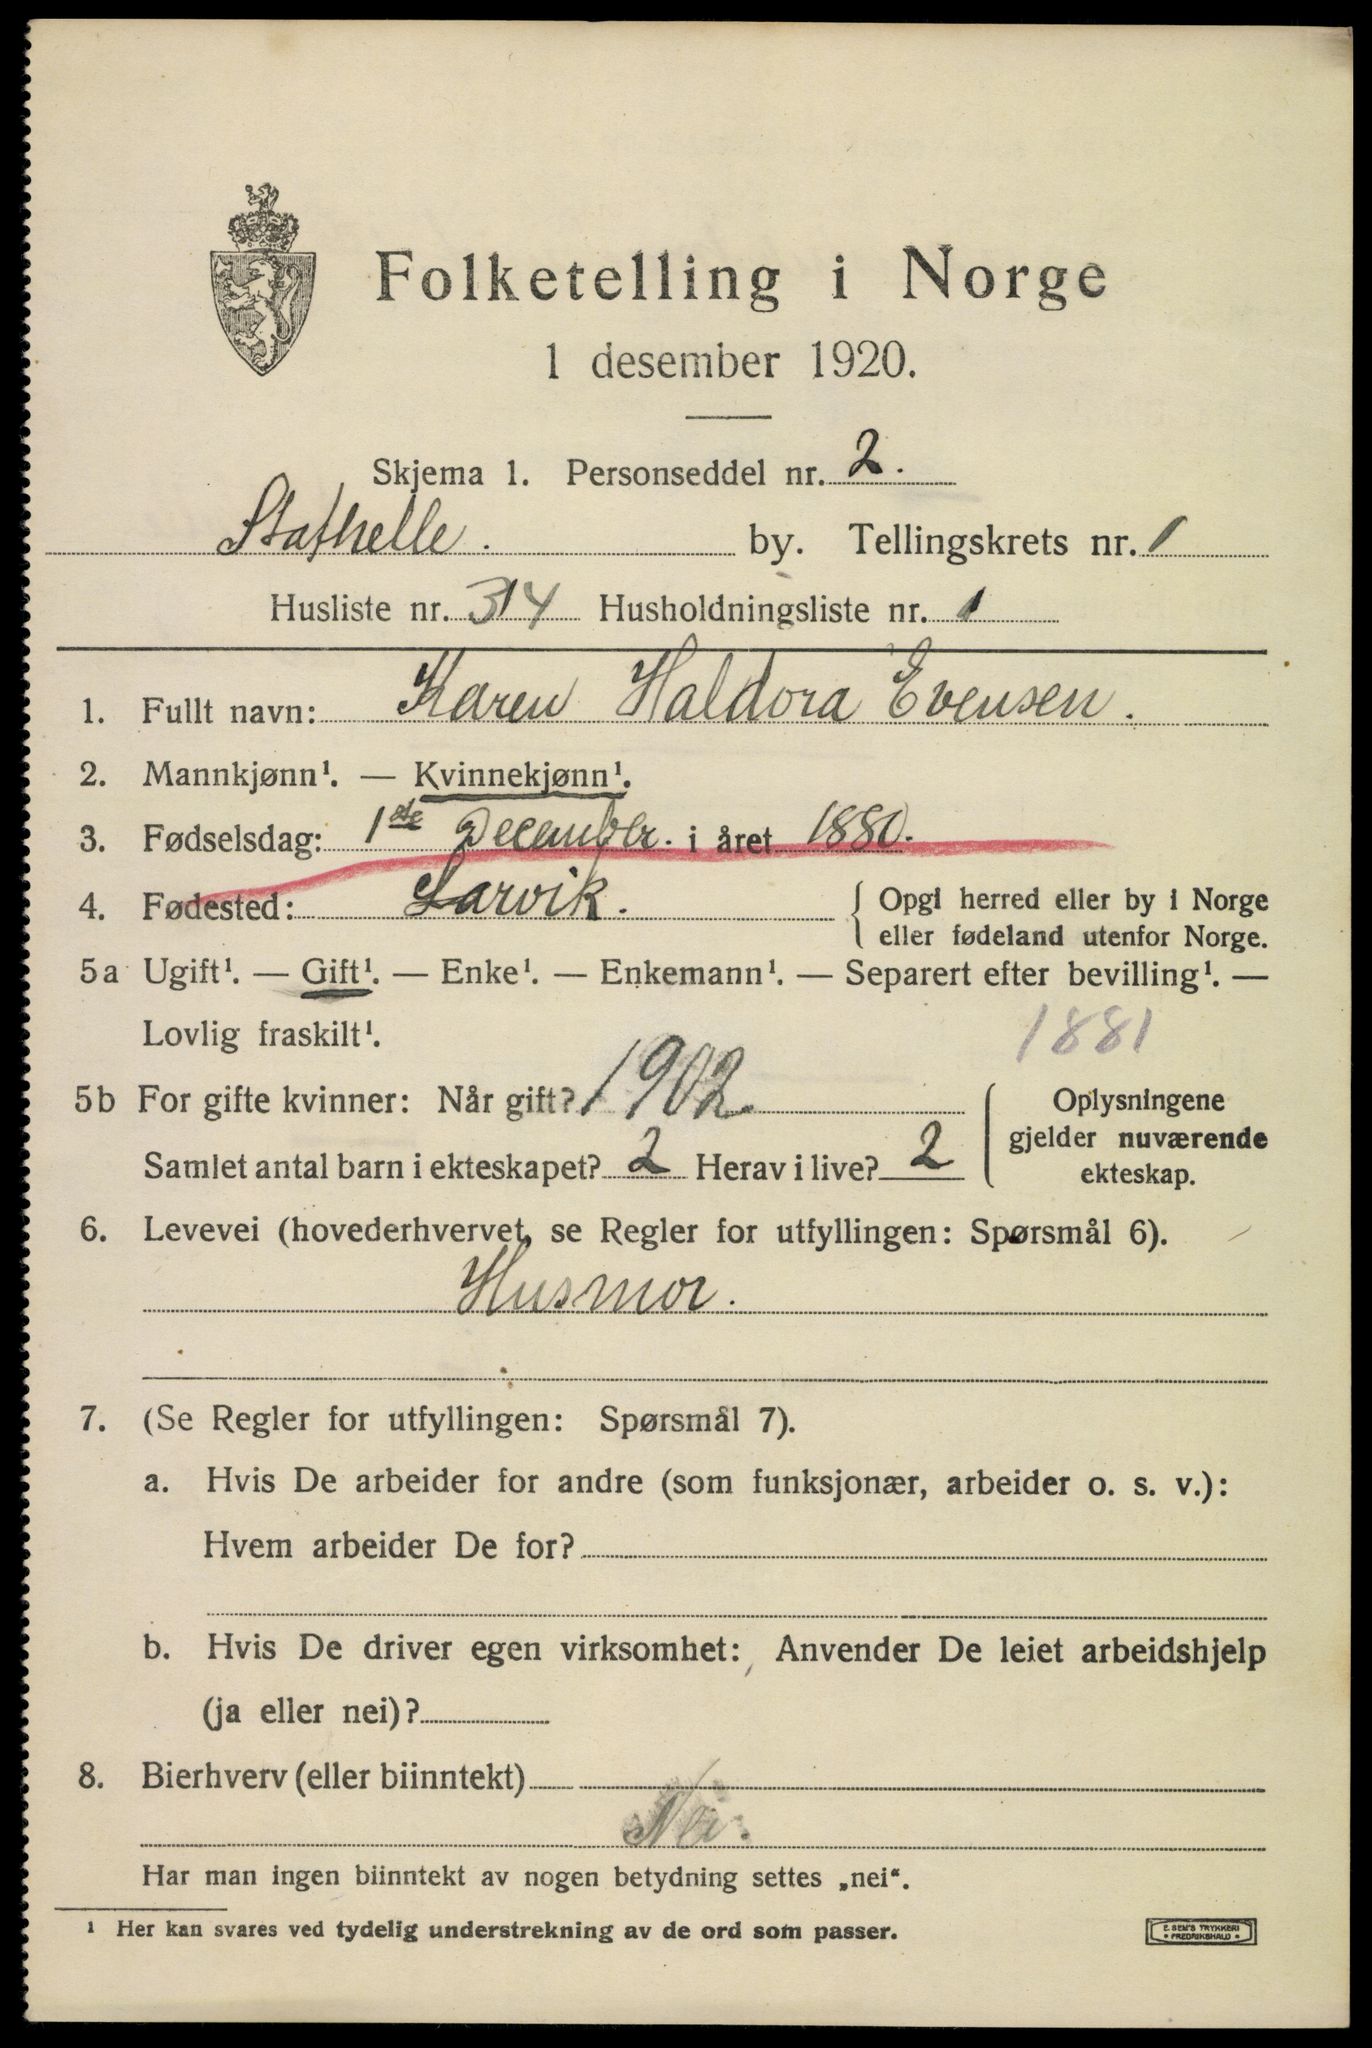 Folketelling i Norge
1 desember 1920.
Skjema 1. Personseddel nr. 2.
Stathelle. by. Tellingskrets nr. 1
Husliste nr. 314 Husholdningsliste nr. 1
1. Fullt navn: Karen Haldora Evensen.
2. Mannkjønn¹. — Kvinnekjønn¹.
3. Fødselsdag: 1ste December. i året 1880.
4. Fødested: Larvik. { Opgi herred eller by i Norge
eller fødeland utenfor Norge.
5a Ugift¹. — Gift¹. — Enke¹. — Enkemann¹. — Separert efter bevilling¹. —
Lovlig fraskilt¹. 1881
5b For gifte kvinner: Når gift? 1902. Oplysningene
gjelder nuværende
Samlet antal barn i ekteskapet? 2 Herav i live? 2 ekteskap.
6. Levevei (hovederhvervet, se Regler for utfyllingen: Spørsmål 6).
Husmor.
7. (Se Regler for utfyllingen: Spørsmål 7).
a. Hvis De arbeider for andre (som funksjonær, arbeider o. s. v.):
Hvem arbeider De for?
b. Hvis De driver egen virksomhet: Anvender De leiet arbeidshjelp
(ja eller nei)?
8. Bierhverv (eller biinntekt)
Nei.
Har man ingen biinntekt av nogen betydning settes „nei“.
¹ Her kan svares ved tydelig understrekning av de ord som passer.
E. SEM'S TRYKKERI
• FREDRIKSHALD •